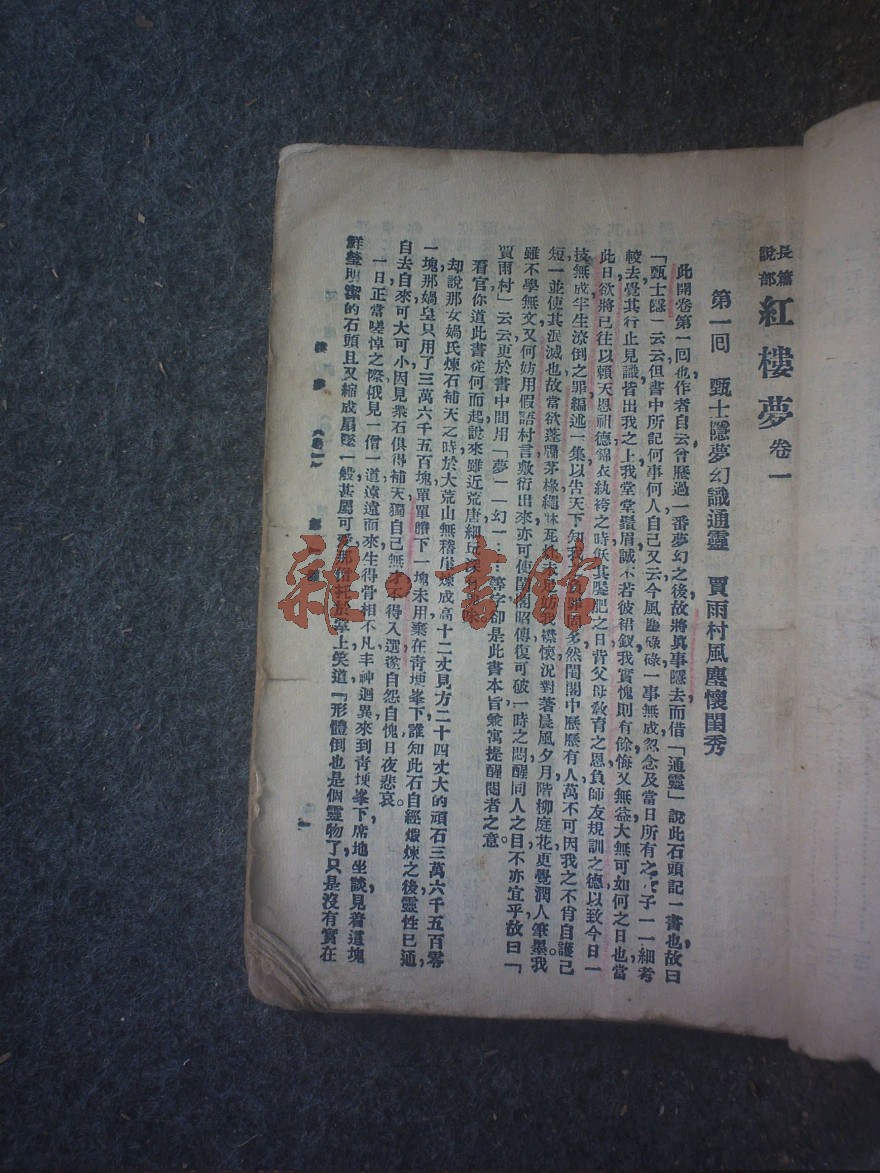 長篇
說部
紅樓夢 卷一
第一回 甄士隱夢幻識通靈 賈雨村風塵懷閨秀
此開卷第一回也作者自云曾歷過一番夢幻之後故將眞事隱去而借「通靈」說此石頭記一書也故曰
「甄士隱」云云但書中所記何事何人自己又云今風塵碌碌一事無成忽念及當日所有之 子一一細考
較去覺其行止見識皆出我之上我堂堂鬚眉誠不若彼裙釵我實愧則有餘悔又無益大無可如何之日也當
此日欲將已往以賴天恩祖德錦衣紈袴之時飫其 肥之日背父母敎育之恩負師友規訓之德以致今日一
技無成半生潦倒之罪編述一集以告天下知我 負罪固多然閨閣中歷歷有人萬不可因我之不肖自護己
短一並使其泯滅也故當欲蓬牖茅椽繩牀瓦灶 妨我襟懷況對著晨風夕月階柳庭花更覺潤人筆墨我
雖不學無文又何妨用假語村言敷衍出來亦可使閨閣昭傳復可破一時之悶醒同人之目不亦宜乎故曰「
賈雨村」云云更於書中間用「夢」「幻」……等字卻是此書本旨兼寓提醒閱者之意。
看官你道此書從何而起說來雖近荒唐細玩 趣味。
却說那女媧氏煉石補天之時於大荒山無稽崖煉成高十二丈見方二十四丈大的頑石三萬六千五百零
一塊那媧皇只用了三萬六千五百塊單單賸下一塊未用棄在青埂峯下誰知此石自經煅煉之後靈性已通
自去自來可大可小因見衆石俱得補天獨自己無才不得入選遂自怨自愧日夜悲哀。
一日正當嗟悼之際俄見一僧一道遠遠而來生得骨相不凡丰神迥異來到青埂峯下席地坐談見着這塊
鮮瑩明潔的石頭且又縮成扇墜一般甚屬可愛那僧托於掌上笑道『形體倒也是個靈物了只是沒有實在
樓夢 (卷一)
一
雜·書館